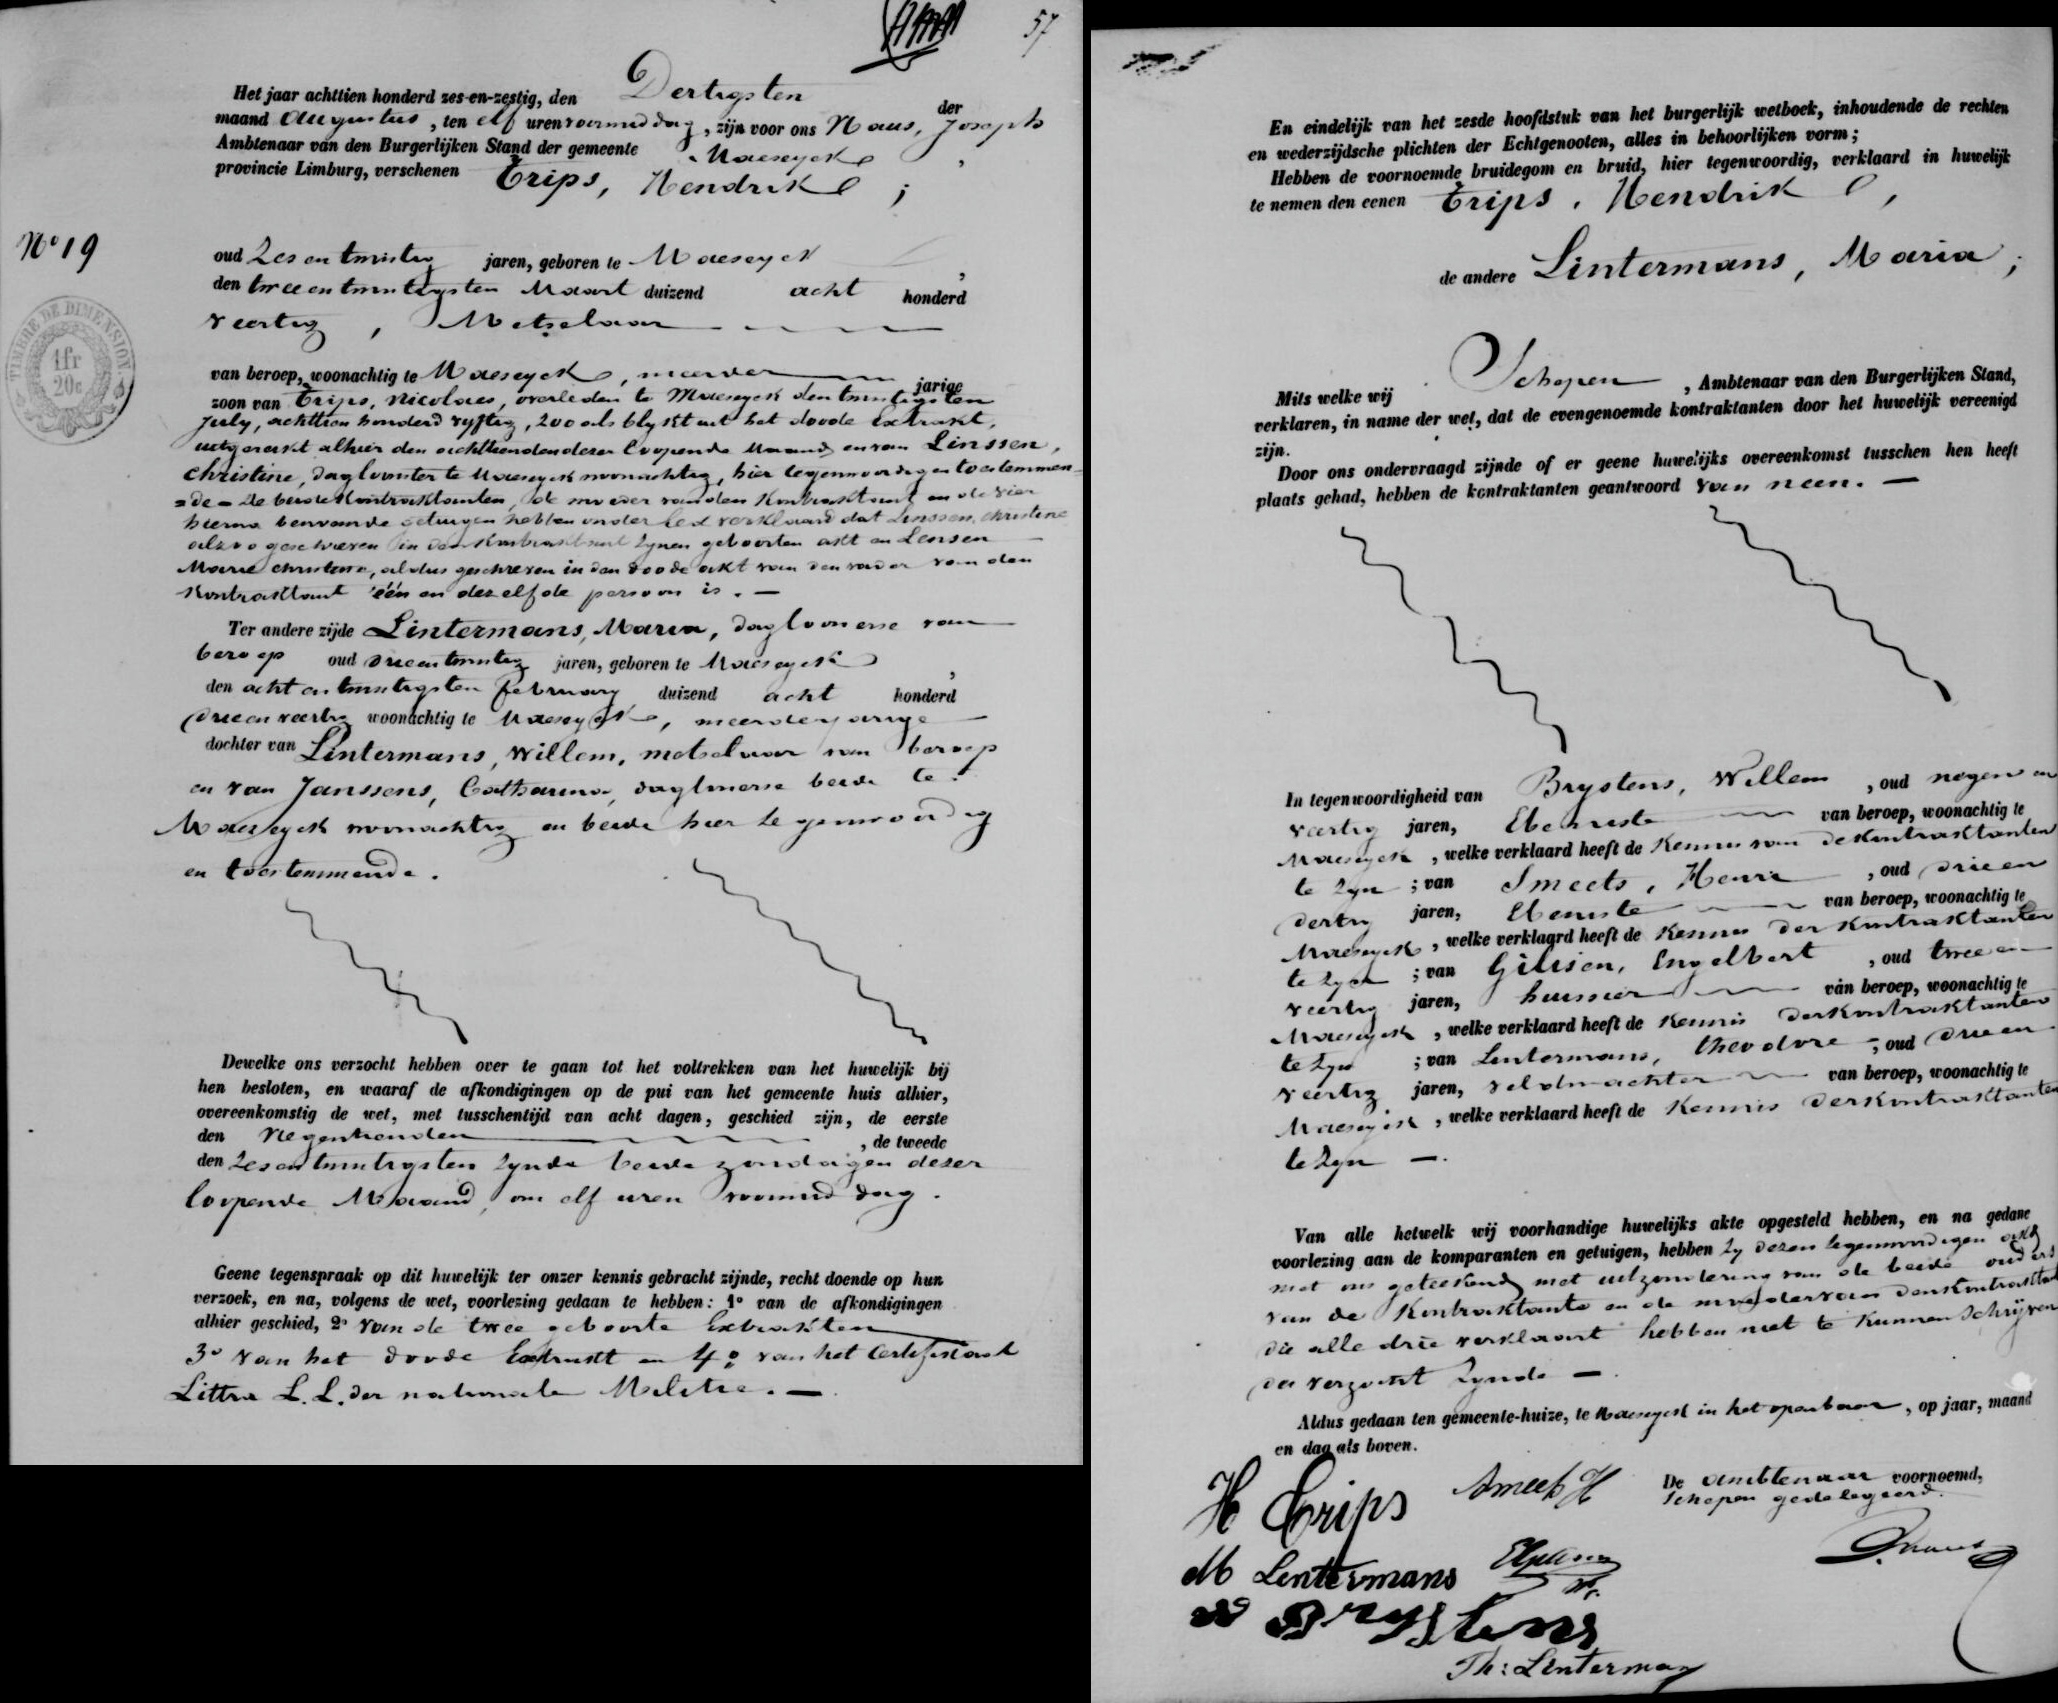 57
Het jaar achttien honderd zes-en-zestig, den Dertigsten der
maand Augustus, ten elf uren voormiddag, zijn voor ons Naus, Joseph
Ambtenaar van den Burgerlijken Stand der gemeente Maeseyck,
provincie Limburg, verschenen Trips, Hendrik;
N° 19
oud Zes en twintig jaren, geboren te Maeseyck,
den twee en twintigsten Maart duizend acht honderd
veertig, Metselaar
TIMBRE DE DIMENSION
1fr
20c
van beroep, woonachtig te Maeseyck, meerder jarige
zoon van Trips, Nicolaes, overleden te Maeseyck den twintigsten
July, achttien honderd vyftig, zoo als blykt uit het doode Extrakt,
uitgereikt alhier den achttienden dezer loopende Maand en van Linssen,
Christine, dagloonster te Maeseyck woonachtig, hier tegenwoordig en toestemmen-
=de - De beide Kontraktanten, de moeder van den Kontraktant en de vier
hierna benoemde getuigen hebben onder Eed verklaard dat Linssen, Christine
alzoo geschreven in den Kontraktant zynen geboorten akt en Lensen
Marie Christine, aldus geschreven in den doode akt van den vader van den
Kontraktant één en dezelfde persoon is. —
Ter andere zijde Lintermans, Maria, dagloonerse van
beroep oud drie en twintig jaren, geboren te Maeseyck,
den acht en twintigsten february duizend acht honderd
drie en veertig woonachtig te Maeseyck, meerderjarige
dochter van Lintermans, Willem, metselaar van beroep
en van Janssens, Catharina, dagloonerse beide te
Maeseyck woonachtig en beide hier tegenwoordig
en toestemmende.
Dewelke ons verzocht hebben over te gaan tot het voltrekken van het huwelijk bij
hen besloten, en waaraf de afkondigingen op de pui van het gemeente huis alhier,
overeenkomstig de wet, met tusschentijd van acht dagen, geschied zijn, de eerste
den Negentienden, de tweede
den Zes en twintigsten zynde beide zondagen dezer
loopende Maand, om elf uren voormiddag.
Geene tegenspraak op dit huwelijk ter onzer kennis gebracht zijnde, recht doende op hun
verzoek, en na, volgens de wet, voorlezing gedaan te hebben: 1° van de afkondigingen
alhier geschied, 2° van de twee geboorte Extrakten
3° van het doode Extrakt en 4° van het Certifikaat
Littra L. L. der nationale Militie. —
En eindelijk van het zesde hoofdstuk van het burgerlijk wetboek, inhoudende de rechten
en wederzijdsche plichten der Echtgenooten, alles in behoorlijken vorm;
Hebben de voornoemde bruidegom en bruid, hier tegenwoordig, verklaard in huwelijk
te nemen den eenen Trips, Hendrik,
de andere Lintermans, Maria;
Mits welke wij Schepen, Ambtenaar van den Burgerlijken Stand,
verklaren, in name der wet, dat de evengenoemde kontraktanten door het huwelijk vereenigd
zijn.
Door ons ondervraagd zijnde of er geene huwelijks overeenkomst tusschen hen heeft
plaats gehad, hebben de kontraktanten geantwoord van neen. —
In tegenwoordigheid van Brystens, Willem, oud negen en
veertig jaren, Ebeniste van beroep, woonachtig te
Maeseyck, welke verklaard heeft de Kennis van de Kontraktanten
te zyn; van Smeets, Henri, oud drie en
dertig jaren, Ebeniste van beroep, woonachtig te
Maeseyck, welke verklaard heeft de Kennis der Kontraktanten
te zyn; van Gilisen, Engelbert, oud twee en
veertig jaren, huissier van beroep, woonachtig te
Maeseyck, welke verklaard heeft de Kennis der Kontraktanten
te zyn; van Lintermans, theodore, oud drie en
veertig jaren, veldwachter van beroep, woonachtig te
Maeseyck, welke verklaard heeft de Kennis der Kontraktanten
te zyn —.
Van alle hetwelk wij voorhandige huwelijks akte opgesteld hebben, en na gedane
voorlezing aan de komparanten en getuigen, hebben zy dezen tegenwoordigen akt
met ons geteekend met uitzondering van de beide ouders
van de Kontraktante en de moeder van den Kontraktant
die alle drie verklaart hebben niet te Kunnen Schryven
der verzocht zynde —.
Aldus gedaan ten gemeente-huize, te Maeseyck in het openbaar, op jaar, maand
en dag als boven.
De ambtenaar voornoemd,
Schepen gedelegeerd.
H Trips
Smeets H
M Lentermans
W Brystens
Th: Linterman